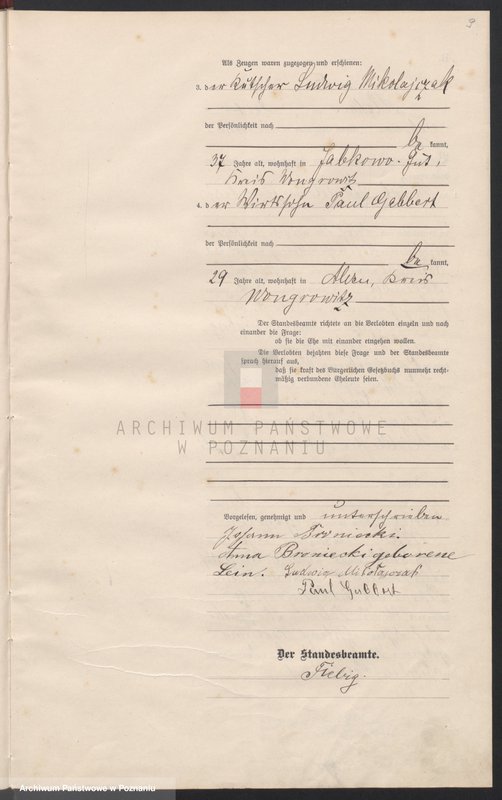 9
Als Zeugen waren zugezogen und erschienen:
3. der Kutscher Ludwig Mikolajczak
der Persönlichkeit nach
be kannt,
37 Jahre alt, wohnhaft in Jabkowo-Gut,
Kreis Wongrowitz
4. der Wirtssohn Paul Gebbert
der Persönlichkeit nach
be kannt,
29 Jahre alt, wohnhaft in Kreis
Wongrowitz
Der Standesbeamte richtete an die Verlobten einzeln und nach
einander die Frage:
ob sie die Ehe mit einander eingehen wollen.
Die Verlobten bejahten diese Frage und der Standesbeamte
sprach hierauf aus,
daß sie kraft des Bürgerlichen Gesetzbuchs nunmehr recht-
mäßig verbundene Eheleute seien.
ARCHIWUM PAŃSTWOWE
W POZNANIU
Vorgelesen, genehmigt und unterschrieben
Johann Broniecki.
Anna Broniecki geborene
Lein. Ludwig Mikołajczak
Paul Gebbert
Der Standesbeamte.
Fiebig.
Archiwum Państwowe w Poznaniu